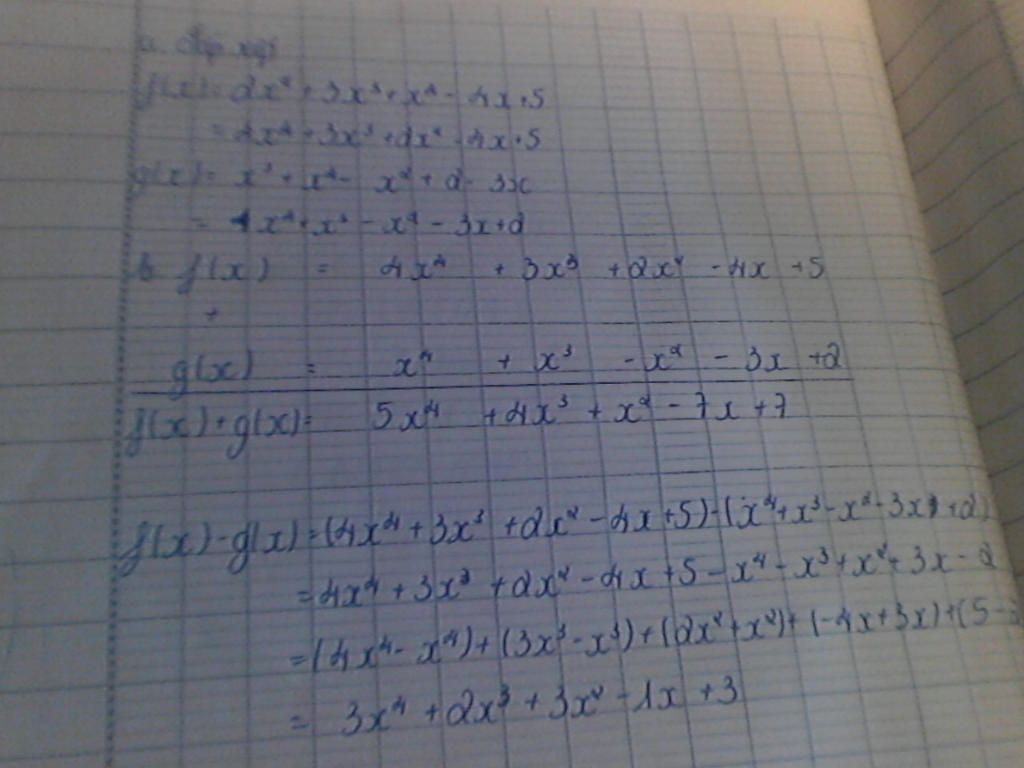 a. Sắp xếp
f(x) = 2x² + 3x³ + x⁴ - 4x + 5
= 4x⁴ + 3x³ + 2x² - 4x + 5
g(x) = x³ + x⁴ - x² + 2 - 3x
= 1x⁴ + x³ - x² - 3x + 2
b. f(x) = 4x⁴ + 3x³ + 2x² - 4x + 5
+
g(x) = x⁴ + x³ - x² - 3x + 2
f(x) + g(x) = 5x⁴ + 4x³ + x² - 7x + 7
f(x) - g(x) = (4x⁴ + 3x³ + 2x² - 4x + 5) - (x⁴ + x³ - x² - 3x + 2)
= 4x⁴ + 3x³ + 2x² - 4x + 5 - x⁴ - x³ + x² + 3x - 2
= (4x⁴ - x⁴) + (3x³ - x³) + (2x² + x²) + (-4x + 3x) + (5 -
= 3x⁴ + 2x³ + 3x² - 1x + 3